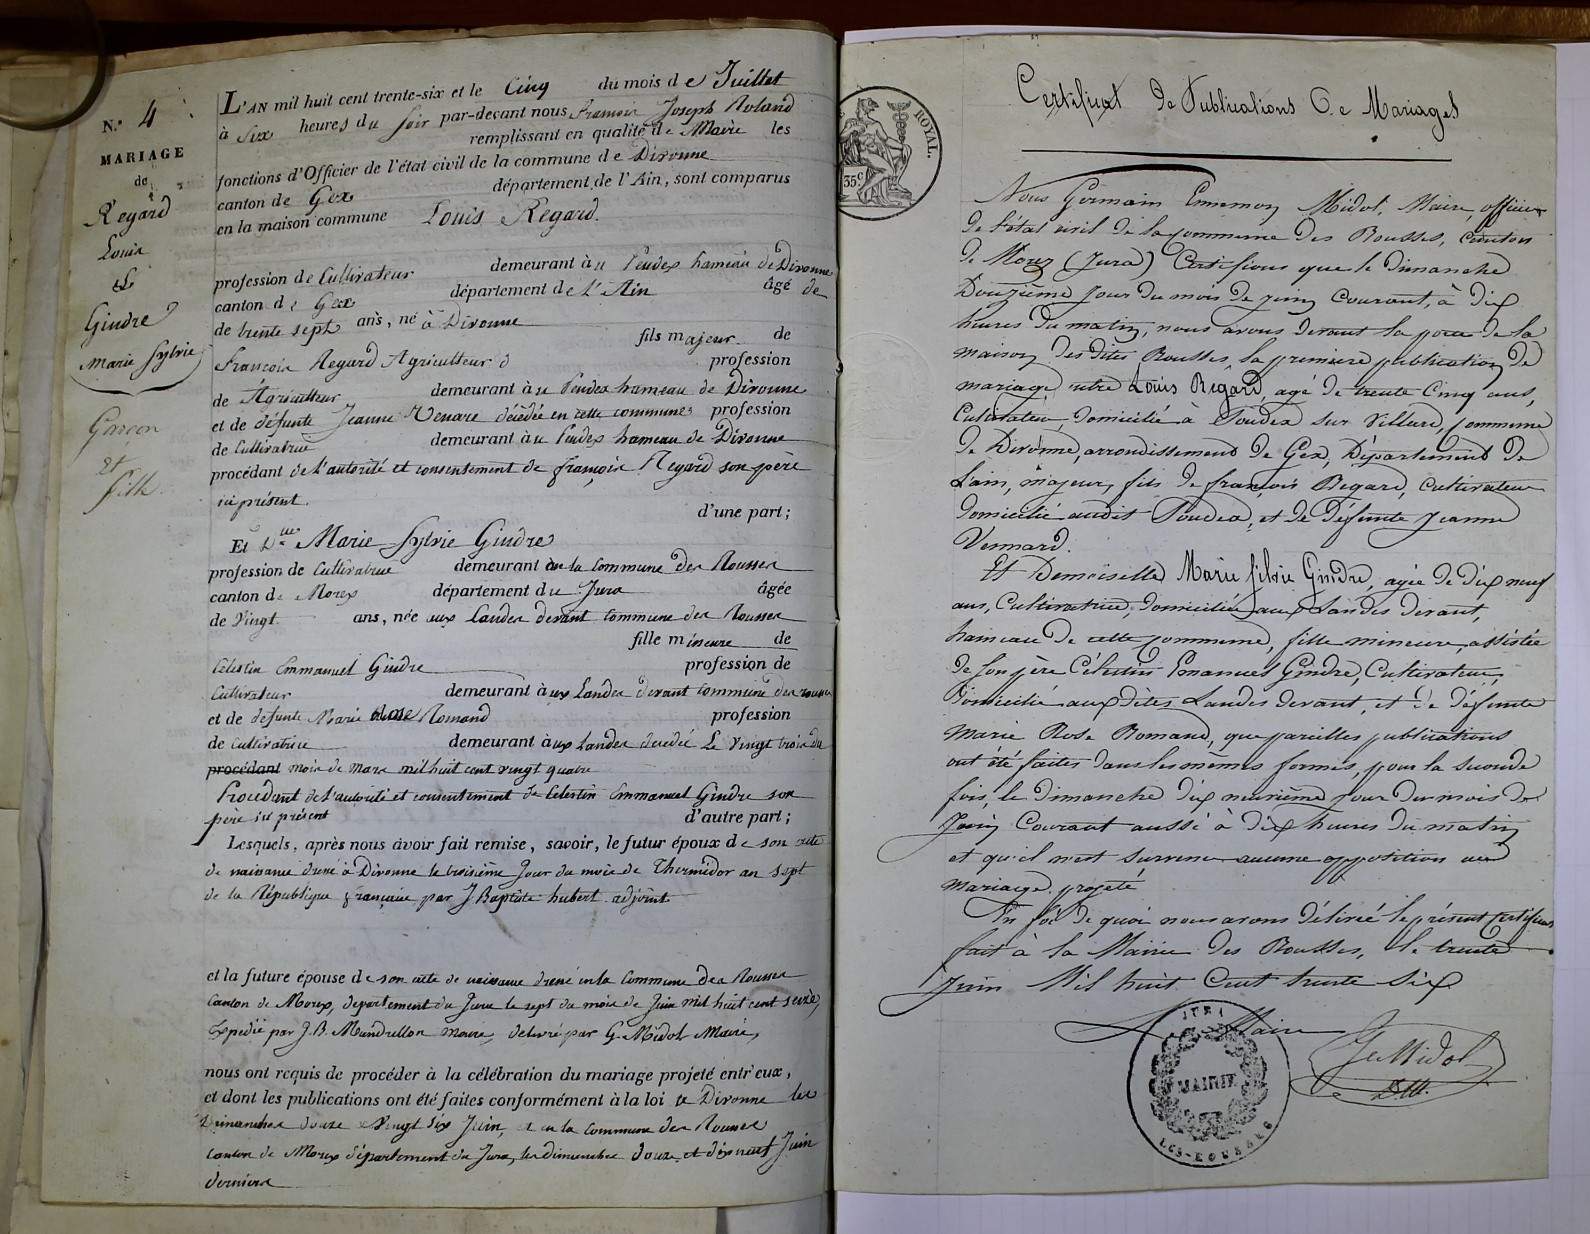 N.° 4
MARIAGE
de
Regard
Louis
Et
Gindre
Marie Sylvie
Garçon
Et
fille
L'AN mil huit cent trente-six et le Cinq du mois de Juillet
à Six heures du soir par-devant nous François Joseph Roland
remplissant en qualité de Maire les
fonctions d'Officier de l'état civil de la commune de Divonne
canton de Gex département de l'Ain, sont comparus
en la maison commune Louis Regard.
profession de Cultivateur demeurant à hameau de Divonne
canton de Gex département de L'Ain âgé de
de trente sept ans, né à Divonne
fils majeur de
François Regard Agriculteur profession
de Agriculteur demeurant à hameau de Divonne
et de défunte Jeanne Venare décédée en cette commune profession
de Cultivatrice demeurant à hameau de Divonne
procédant de l'autorité et consentement de françois Regard son père
ici présent.
d'une part;
Et Dlle Marie Sylvie Gindre
profession de Cultivatrice demeurant en la Commune des Rousses
canton de Morez département du Jura âgée
de Vingt ans, née aux Landes devant Commune des Rousses
fille mineure de
Celestin Emmanuel Gindre profession de
Cultivateur demeurant aux Landes devant commune des rousses
et de defunte Marie Rose Romand profession
de Cultivatrice demeurant aux Landes decedée Le Vingt trois du
procédant mois de Mars mil huit cent vingt quatre
Procédant de l'autorité et consentement de Celestin Emmanuel Gindre son
pere ici présent d'autre part;
Lesquels, après nous avoir fait remise, savoir, le futur époux de son acte
de naissance dressé à Divonne le troisième Jour du mois de Thermidor an sept
de la République française par J Baptiste hubert adjoint
et la future épouse de son acte de naissance dressé en la Commune des Rousses
Canton de Morez, département du Jura le sept du mois de Juin mil huit cent seize,
Expedié par J. B. Mandrillon maire, délivré par G. Midol Maire,
nous ont requis de procéder à la célébration du mariage projeté entr'eux,
et dont les publications ont été faites conformément à la loi à Divonne les
Dimanches douze & Vingt Six Juin, et en la commune des Rousses
Canton de Morez département du Jura, les dimanches douze et dixneuf Juin
derniers
ROYAL.
35 c
Certificat de Publications De Mariages
Nous Germain Ennemon Midol, Maire, officier
de l'état civil de la commune des Rousses, canton
de Morez (Jura) Certifions que le dimanche
Douzième jour du mois de juin courant, à dix
heures du matin, nous avons devant la porte de la
maison des dites Rousses la première publication de
mariage entre Louis Regard, agé de trente Cinq ans,
Cultivateur, domicilié à Poudex sur Villard, Commune
de Divonne, arrondissement de Gex, Département de
Lain, majeur, fils de françois Regard, Cultivateur
domicilié audit Poudex, et de Défunte Jeanne
Vennard.
Et Demoiselle Marie silvie Gindre, agée de dix neuf
ans, Cultivatrice, domiciliée aux Landes devant,
hameau de cette commune, fille mineure, assistée
de son père Célestin Emanuel Gindre, Cultivateur,
Domicilié aux dites Landes devant, et de défunte
Marie Rose Romand, que pareilles publications
ont été faites dans les mêmes formes, pour la seconde
fois, le dimanche dix neuvième jour du mois de
Juin Courant aussi à dix heures du matin
et qu'il n'est survenu aucune opposition au
mariage projeté
En foi de quoi nous avons délivré le présent Certificat
fait à la Mairie des Rousses, le trente
Juin Mil huit Cent trente six
Le Maire
G. Midol
JURA
MAIRIE
LES-ROUSSES